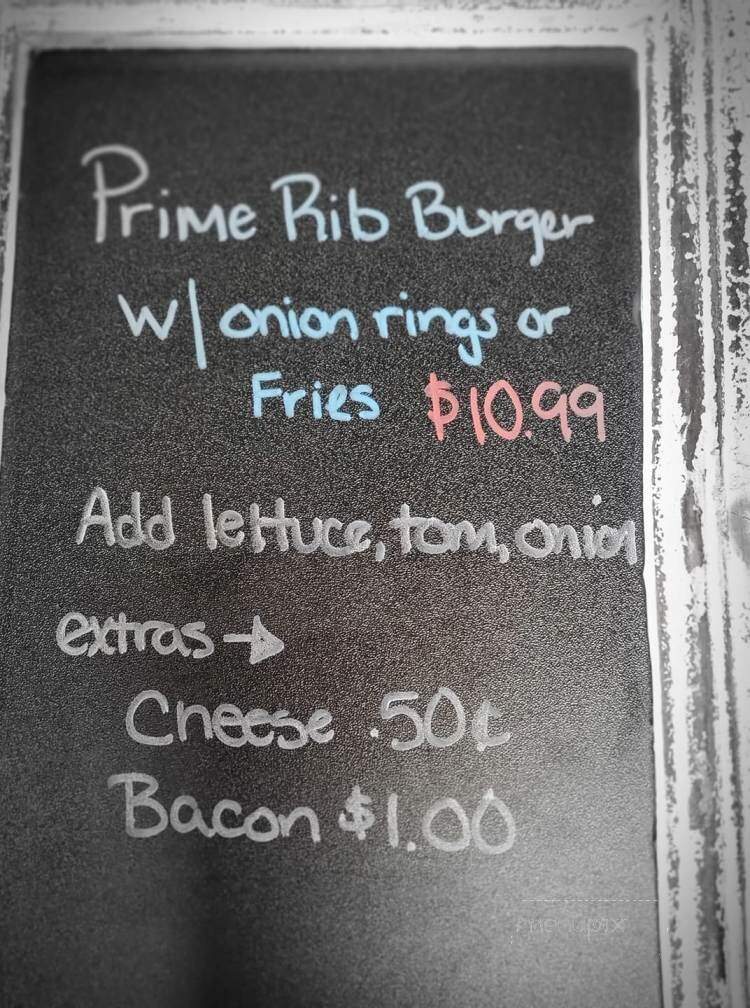 Prime Rib Burger
W/ onion rings or
Fries $10.99
Add lettuce, tom, onion
extras →
Cheese .50¢
Bacon $1.00